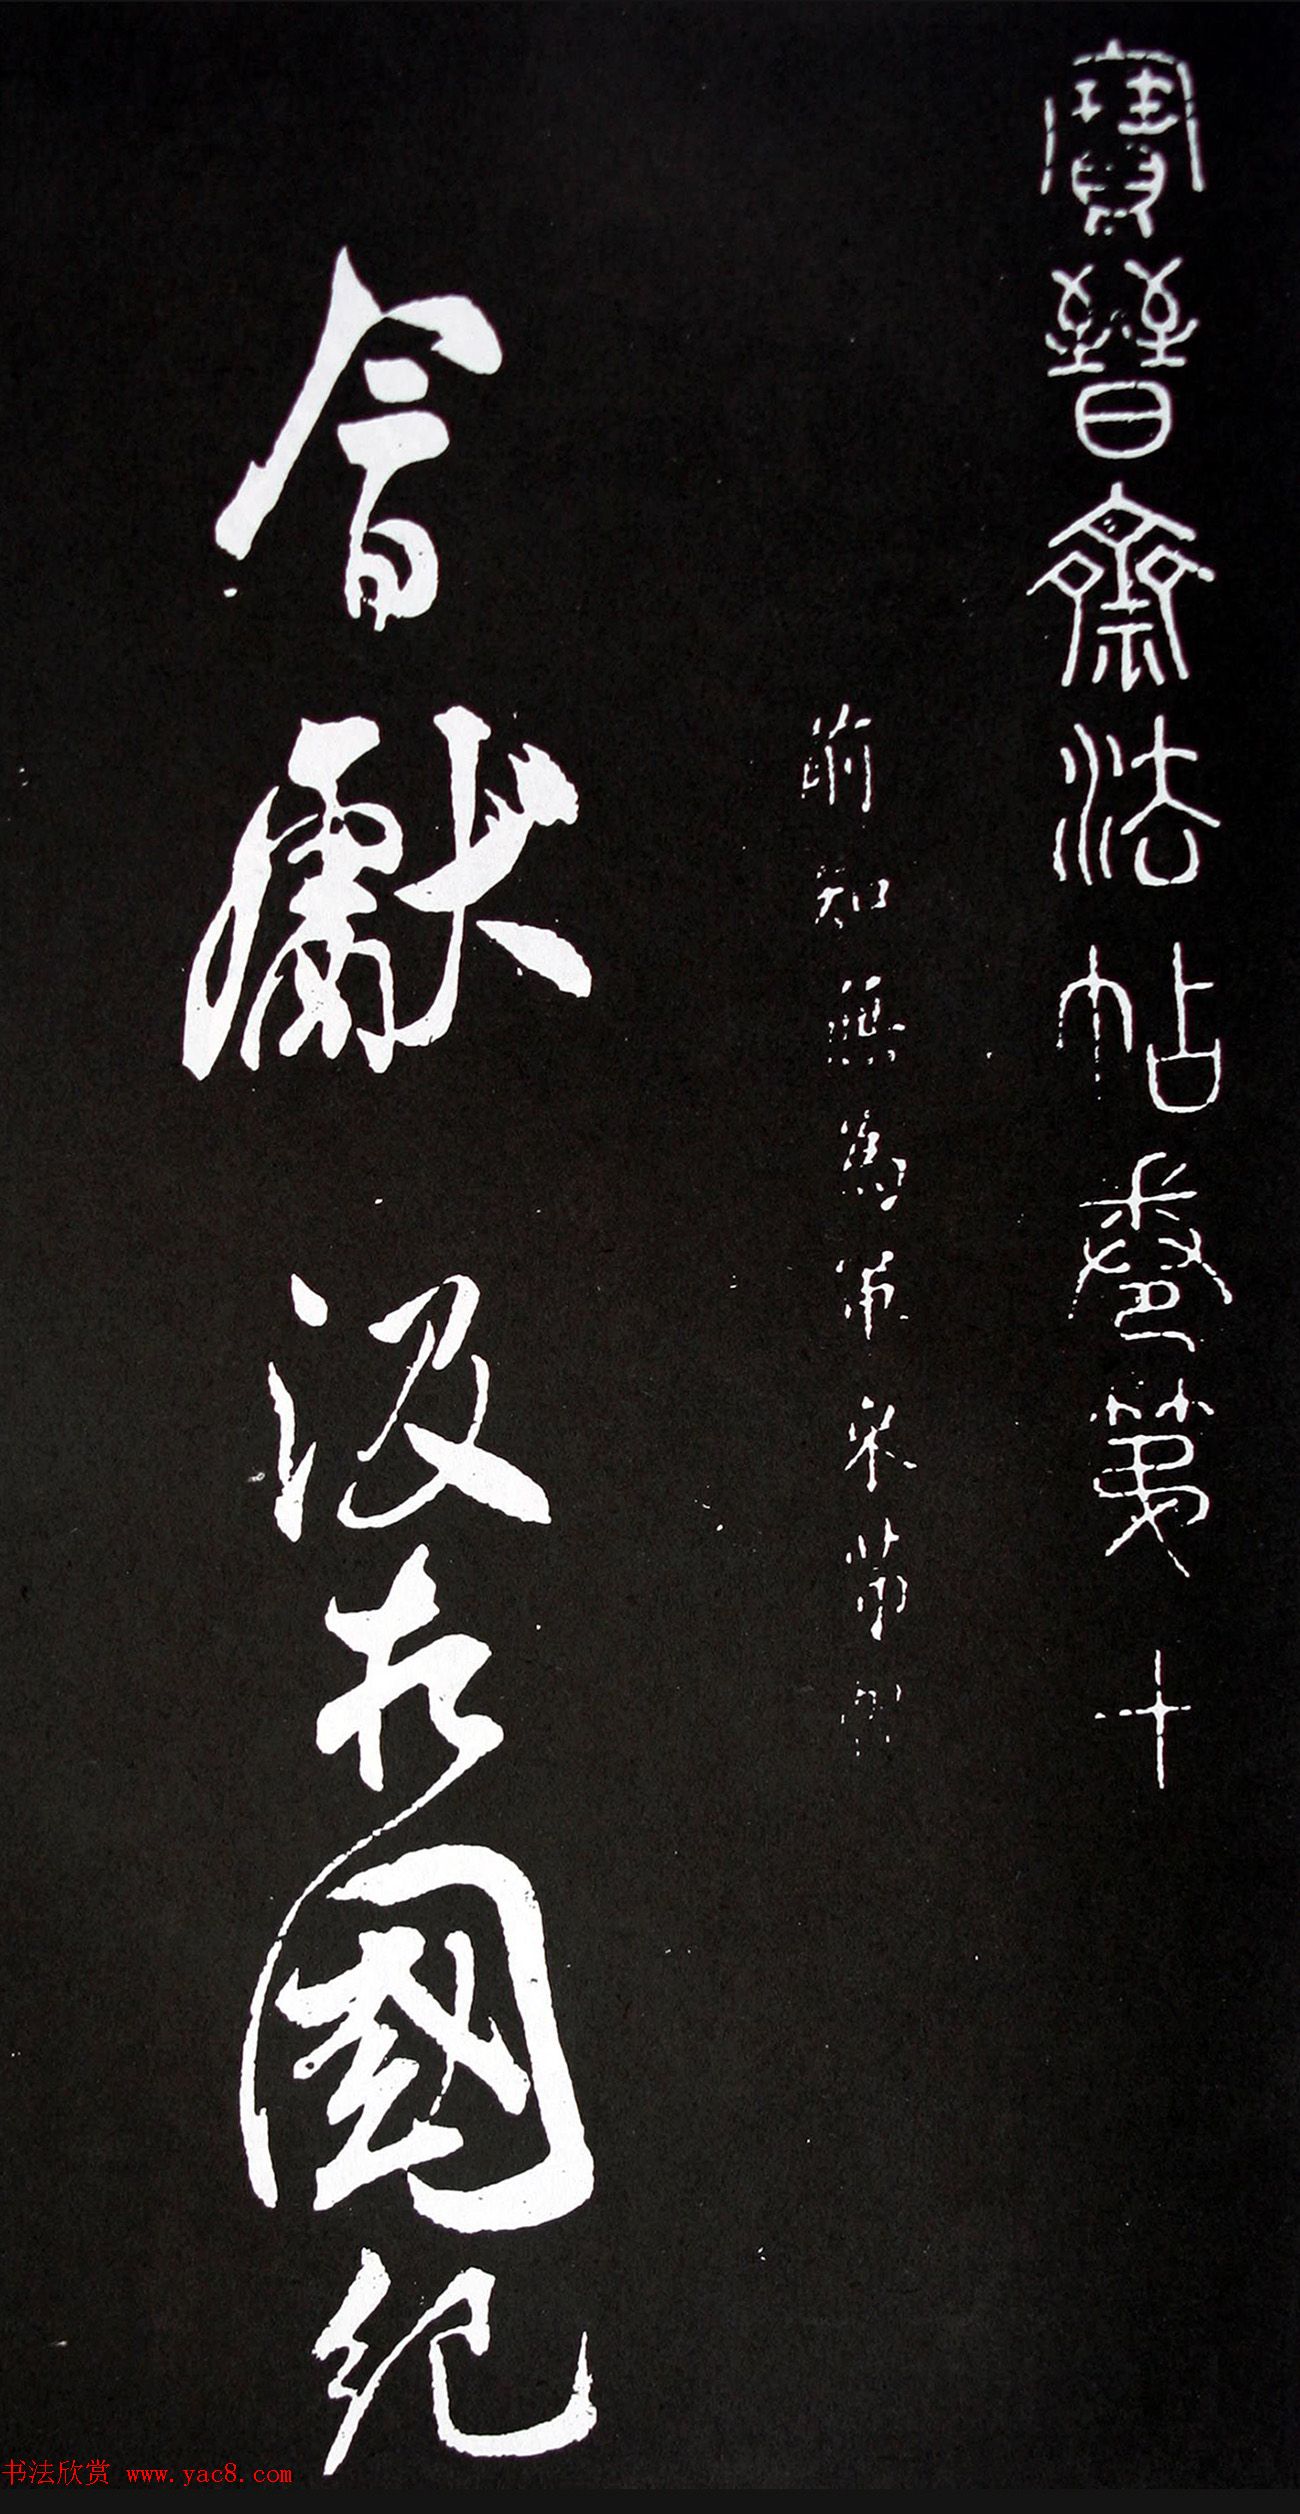 寶晉齋法帖卷第十
前知無為軍米芾
會獻汲於國紀
书法欣赏 www.yac8.com